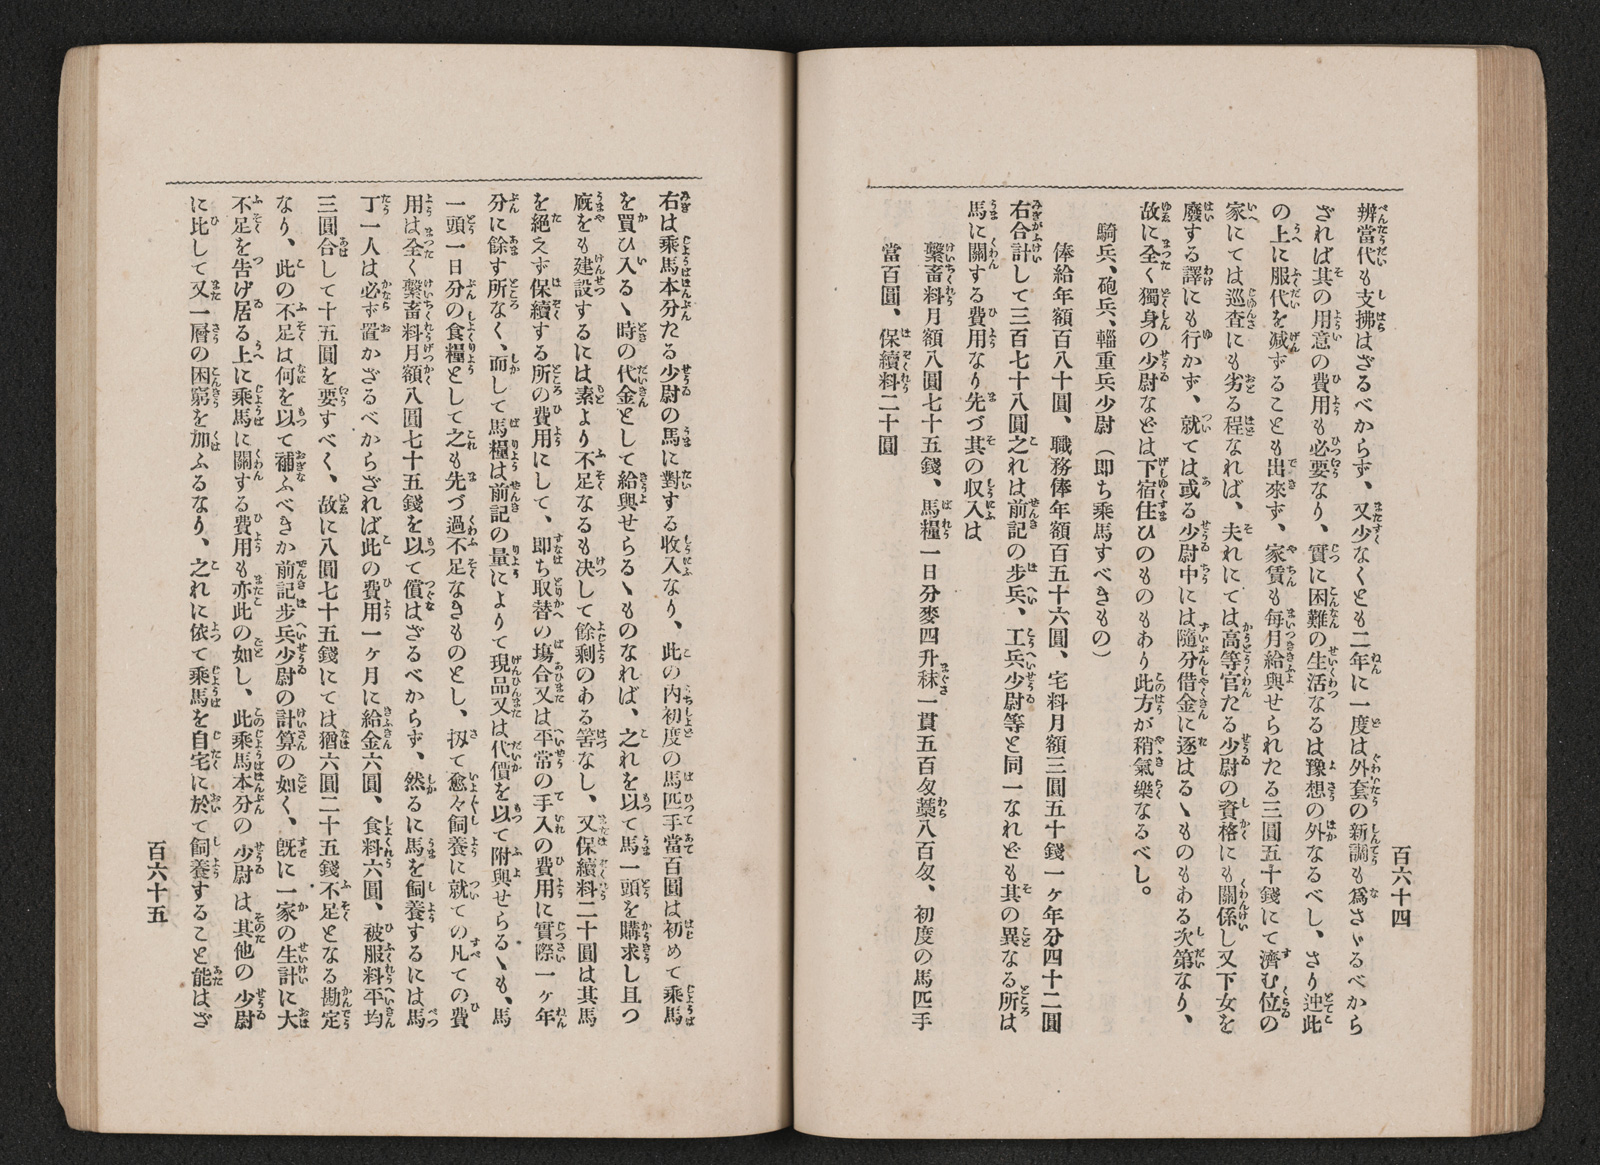 百六十四
辨當代も支拂はざるべからず、又少なくとも二年に一度は外套の新調も爲さゞるべから
ざれば其の用意の費用も必要なり、實に困難の生活なるは豫想の外なるべし、さり迚此
の上に服代を減ずることも出來ず、家賃も毎月給與せられたる三圓五十錢にて濟む位の
家にては巡査にも劣る程なれば、夫れにては高等官たる少尉の資格にも關係し又下女を
廢する譯にも行かず、就ては或る少尉中には隨分借金に逐はるゝものもある次第なり、
故に全く獨身の少尉などは下宿住ひのものもあり此方が稍氣樂なるべし。
騎兵、砲兵、輜重兵少尉（即ち乘馬すべきもの）
俸給年額百八十圓、職務俸年額百五十六圓、宅料月額三圓五十錢一ヶ年分四十二圓
右合計して三百七十八圓之れは前記の步兵、工兵少尉等と同一なれども其の異なる所は
馬に關する費用なり先づ其の収入は
繫畜料月額八圓七十五錢、馬糧一日分麥四升秣一貫五百匁藁八百匁、初度の馬匹手
當百圓、保續料二十圓
右は乘馬本分たる少尉の馬に對する收入なり、此の內初度の馬匹手當百圓は初めて乘馬
を買ひ入るゝ時の代金として給與せらるゝものなれば、之れを以て馬一頭を購求し且つ
廐をも建設するには素より不足なるも決して餘剩のある筈なし、又保續料二十圓は其馬
を絕えず保續する所の費用にして、即ち取替の塲合又は平常の手入の費用に實際一ヶ年
分に餘す所なく、而して馬糧は前記の量によりて現品又は代價を以て附與せらるゝも、馬
一頭一日分の食糧として之も先づ過不足なきものとし、扨て愈々飼養に就ての凡ての費
用は全く繫畜料月額八圓七十五錢を以て償はざるべからず、然るに馬を飼養するには馬
丁一人は必ず置かざるべからざれば此の費用一ヶ月に給金六圓、食料六圓、被服料平均
三圓合して十五圓を要すべく、故に八圓七十五錢にては猶六圓二十五錢不足となる勘定
なり、此の不足は何を以て補ふべきか前記步兵少尉の計算の如く、旣に一家の生計に大
不足を告げ居る上に乘馬に關する費用も亦此の如し、此乘馬本分の少尉は其他の少尉
に比して又一層の困窮を加ふるなり、之れに依て乘馬を自宅に於て飼養すること能はざ
百六十五